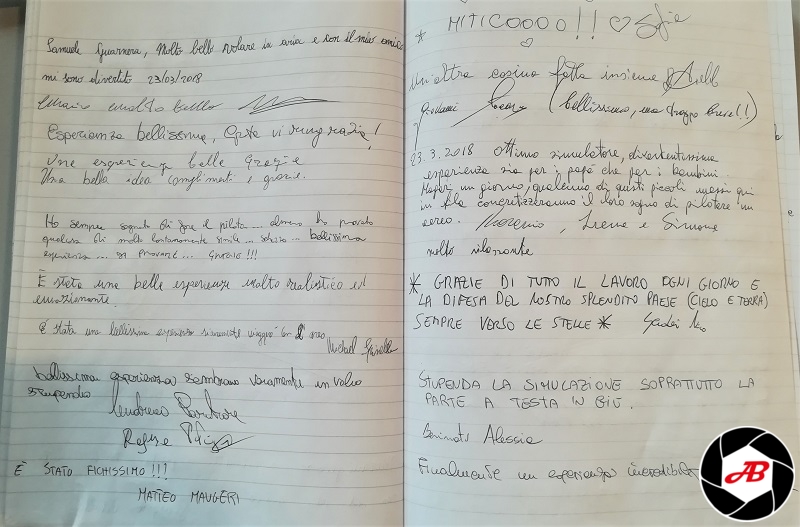 Samuele Guarnera, Molto bello volare in aria e con il mio amico
mi sono divertito 23/03/2018
molto bello
Esperienza bellissima, Gesta vi ringrazia!
Una esperienza bella Grazie
Una bella idea complimenti,
Ho sempre sognato di fare il pilota... almeno ho provato
qualcosa di molto lontanamente simile... scherzo... bellissima
esperienza... da provare... Grazie!!!
È stata una bella esperienza molto realistica ed
emozionante.
È stata una bellissima esperienza viaggio con l'aereo
Michael
bellissima esperienza sembrava veramente un volo
stupendo
Andrea
È STATO FICHISSIMO!!!
MATTEO MAUGERI
* MITICOOOO!! ♡ Sofia
Un'altra cosina fatta insieme
Giovanni (bellissimo, ma troppo breve!!)
23.3.2018 Ottimo simulatore, divertentissima
esperienza sia per i papà che per i bambini.
Magari un giorno, qualcuno di questi piccoli messi qui
in fila concretizzeranno il loro sogno di pilotare un
aereo. Lorena e Simone
molto
* GRAZIE DI TUTTO IL LAVORO OGNI GIORNO E
LA DIFESA DEL NOSTRO SPLENDITO PAESE (CIELO E TERRA)
SEMPRE VERSO LE STELLE *
STUPENDA LA SIMULAZIONE SOPRATTUTTO LA
PARTE A TESTA IN GIÙ.
Alessia
Finalmente un esperienza incredibile
AB